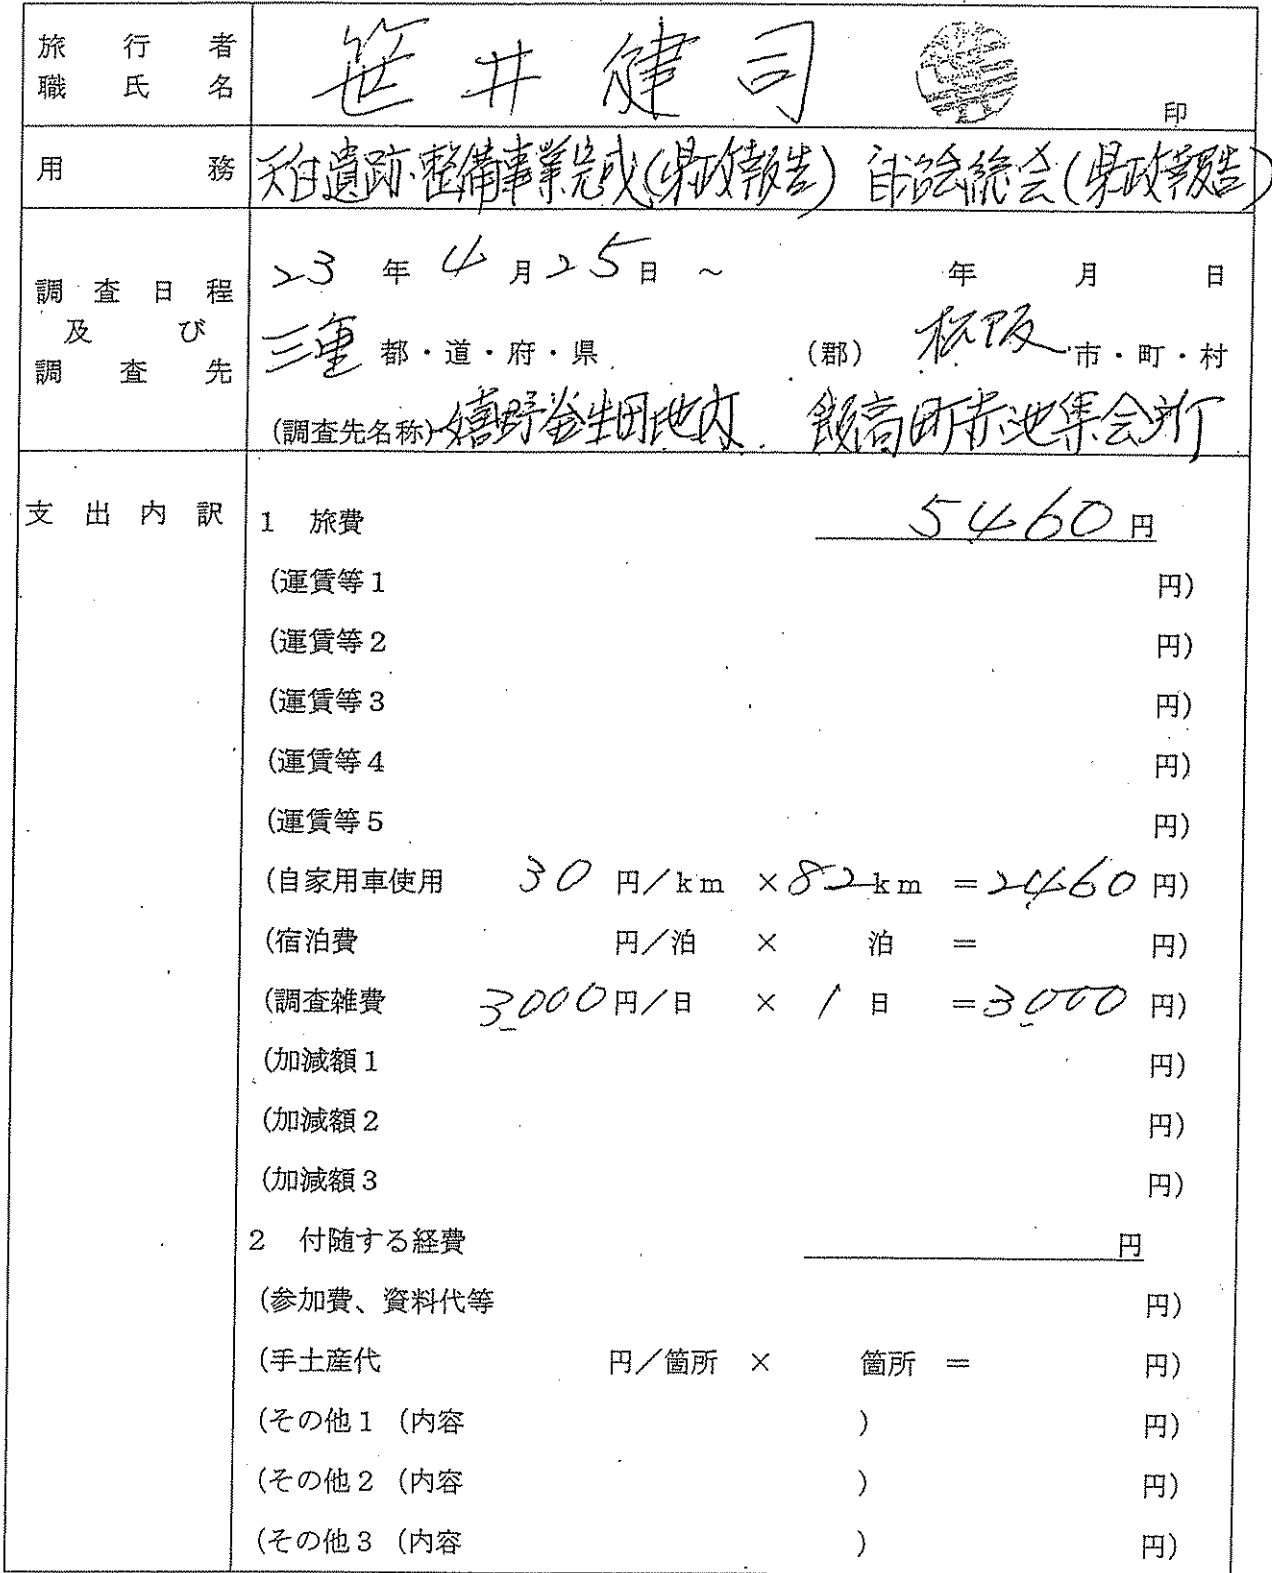 旅行者
職氏名
笹井健司 印
用務
天白遺跡整備事業完成(県政報告) 自治会総会(県政報告)
調査日程
及び
調査先
23年4月25日 ~ 年 月 日
三重 都・道・府・県 (郡) 松阪 市・町・村
(調査先名称) 嬉野釜生田地内 飯高町赤池集会所
支出内訳
1 旅費 5460円
(運賃等1 円)
(運賃等2 円)
(運賃等3 円)
(運賃等4 円)
(運賃等5 円)
(自家用車使用 30 円/km ×82km =2460円)
(宿泊費 円/泊 × 泊 = 円)
(調査雑費 3,000円/日 × 1日 =3,000円)
(加減額1 円)
(加減額2 円)
(加減額3 円)
2 付随する経費 円
(参加費、資料代等 円)
(手土産代 円/箇所 × 箇所 = 円)
(その他1 (内容 ) 円)
(その他2 (内容 ) 円)
(その他3 (内容 ) 円)